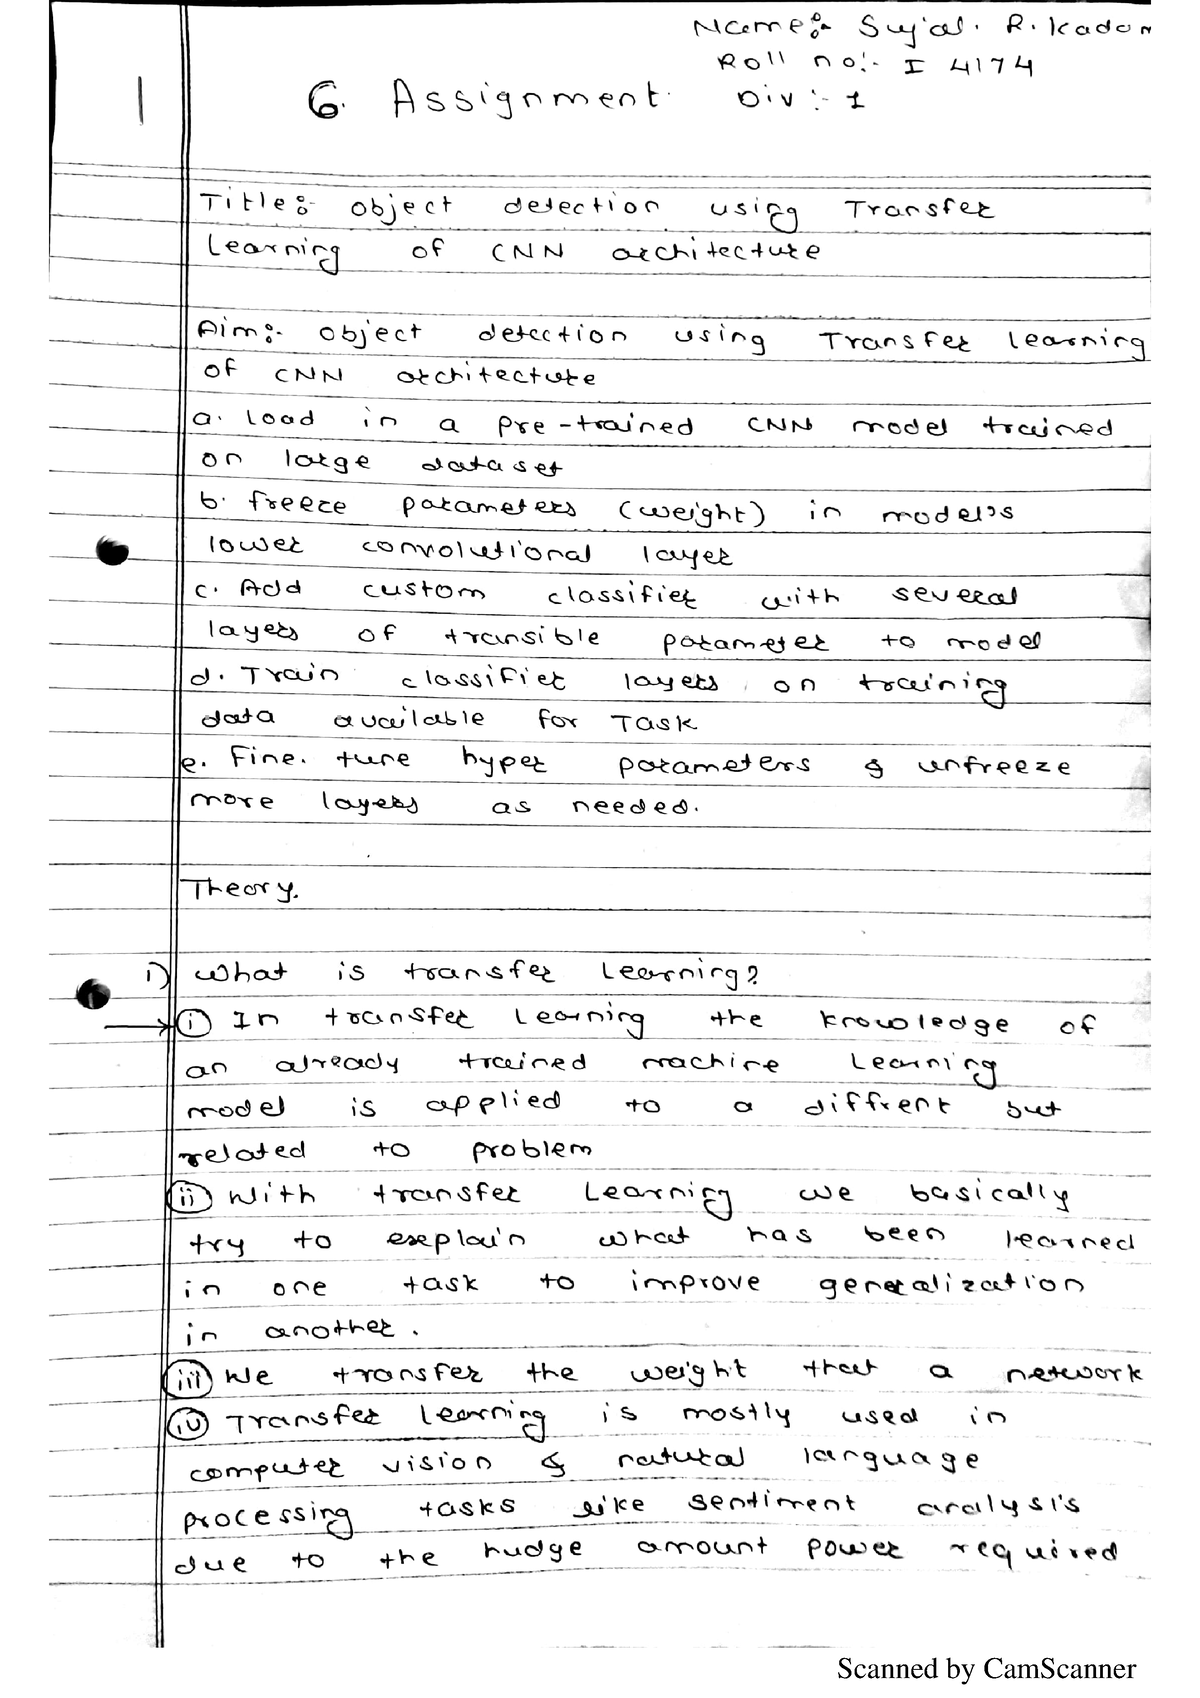 Name:- Sujal. R. Kadam
Roll no:- I 4174
6. Assignment. Div:- 1
Title:- object detection using Transfer
Learning of CNN architecture
Aim:- object detection using Transfer learning
of CNN architecture
a. load in a pre-trained CNN model trained
on large dataset
b. freeze parameters (weight) in model's
lower convolutional layer
c. Add custom classifier with several
layers of transible parameter to model
d. Train classifier layers on training
data available for Task
e. Fine. ture hyper parameters & unfreeze
more layers as needed.
Theory.
1) what is transfer learning?
→ (i) In transfer learning the knowledge of
an already trained machine learning
model is applied to a diffrent but
related to problem
(ii) With transfer Learning we basically
try to exeplain what has been learned
in one task to improve generalization
in another.
(iii) We transfer the weight that a network
(iv) Transfer learning is mostly used in
computer vision & natural language
processing tasks like sentiment analysis
due to the hudge amount power required
Scanned by CamScanner